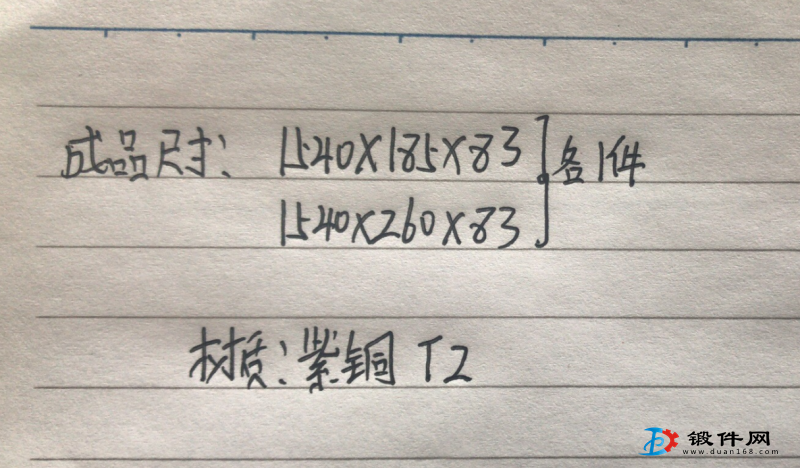 成品尺寸: 1540X185X83 ] 各1件
1540X260X83
材质: 紫铜 T2
锻件网
www.duan168.com